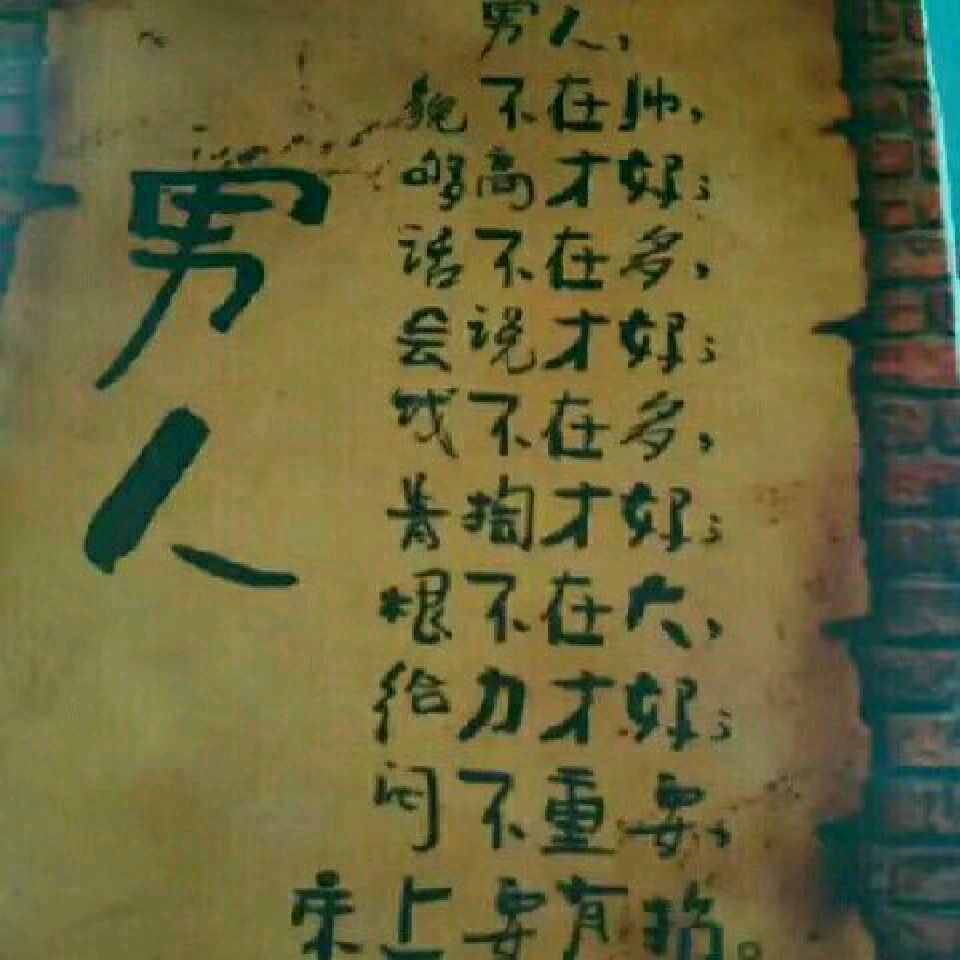 男人
男人，
貌不在帅，
够高才好；
话不在多，
会说才好；
钱不在多，
肯掏才好；
根不在大，
给力才好；
闷不重要，
床上要有招。